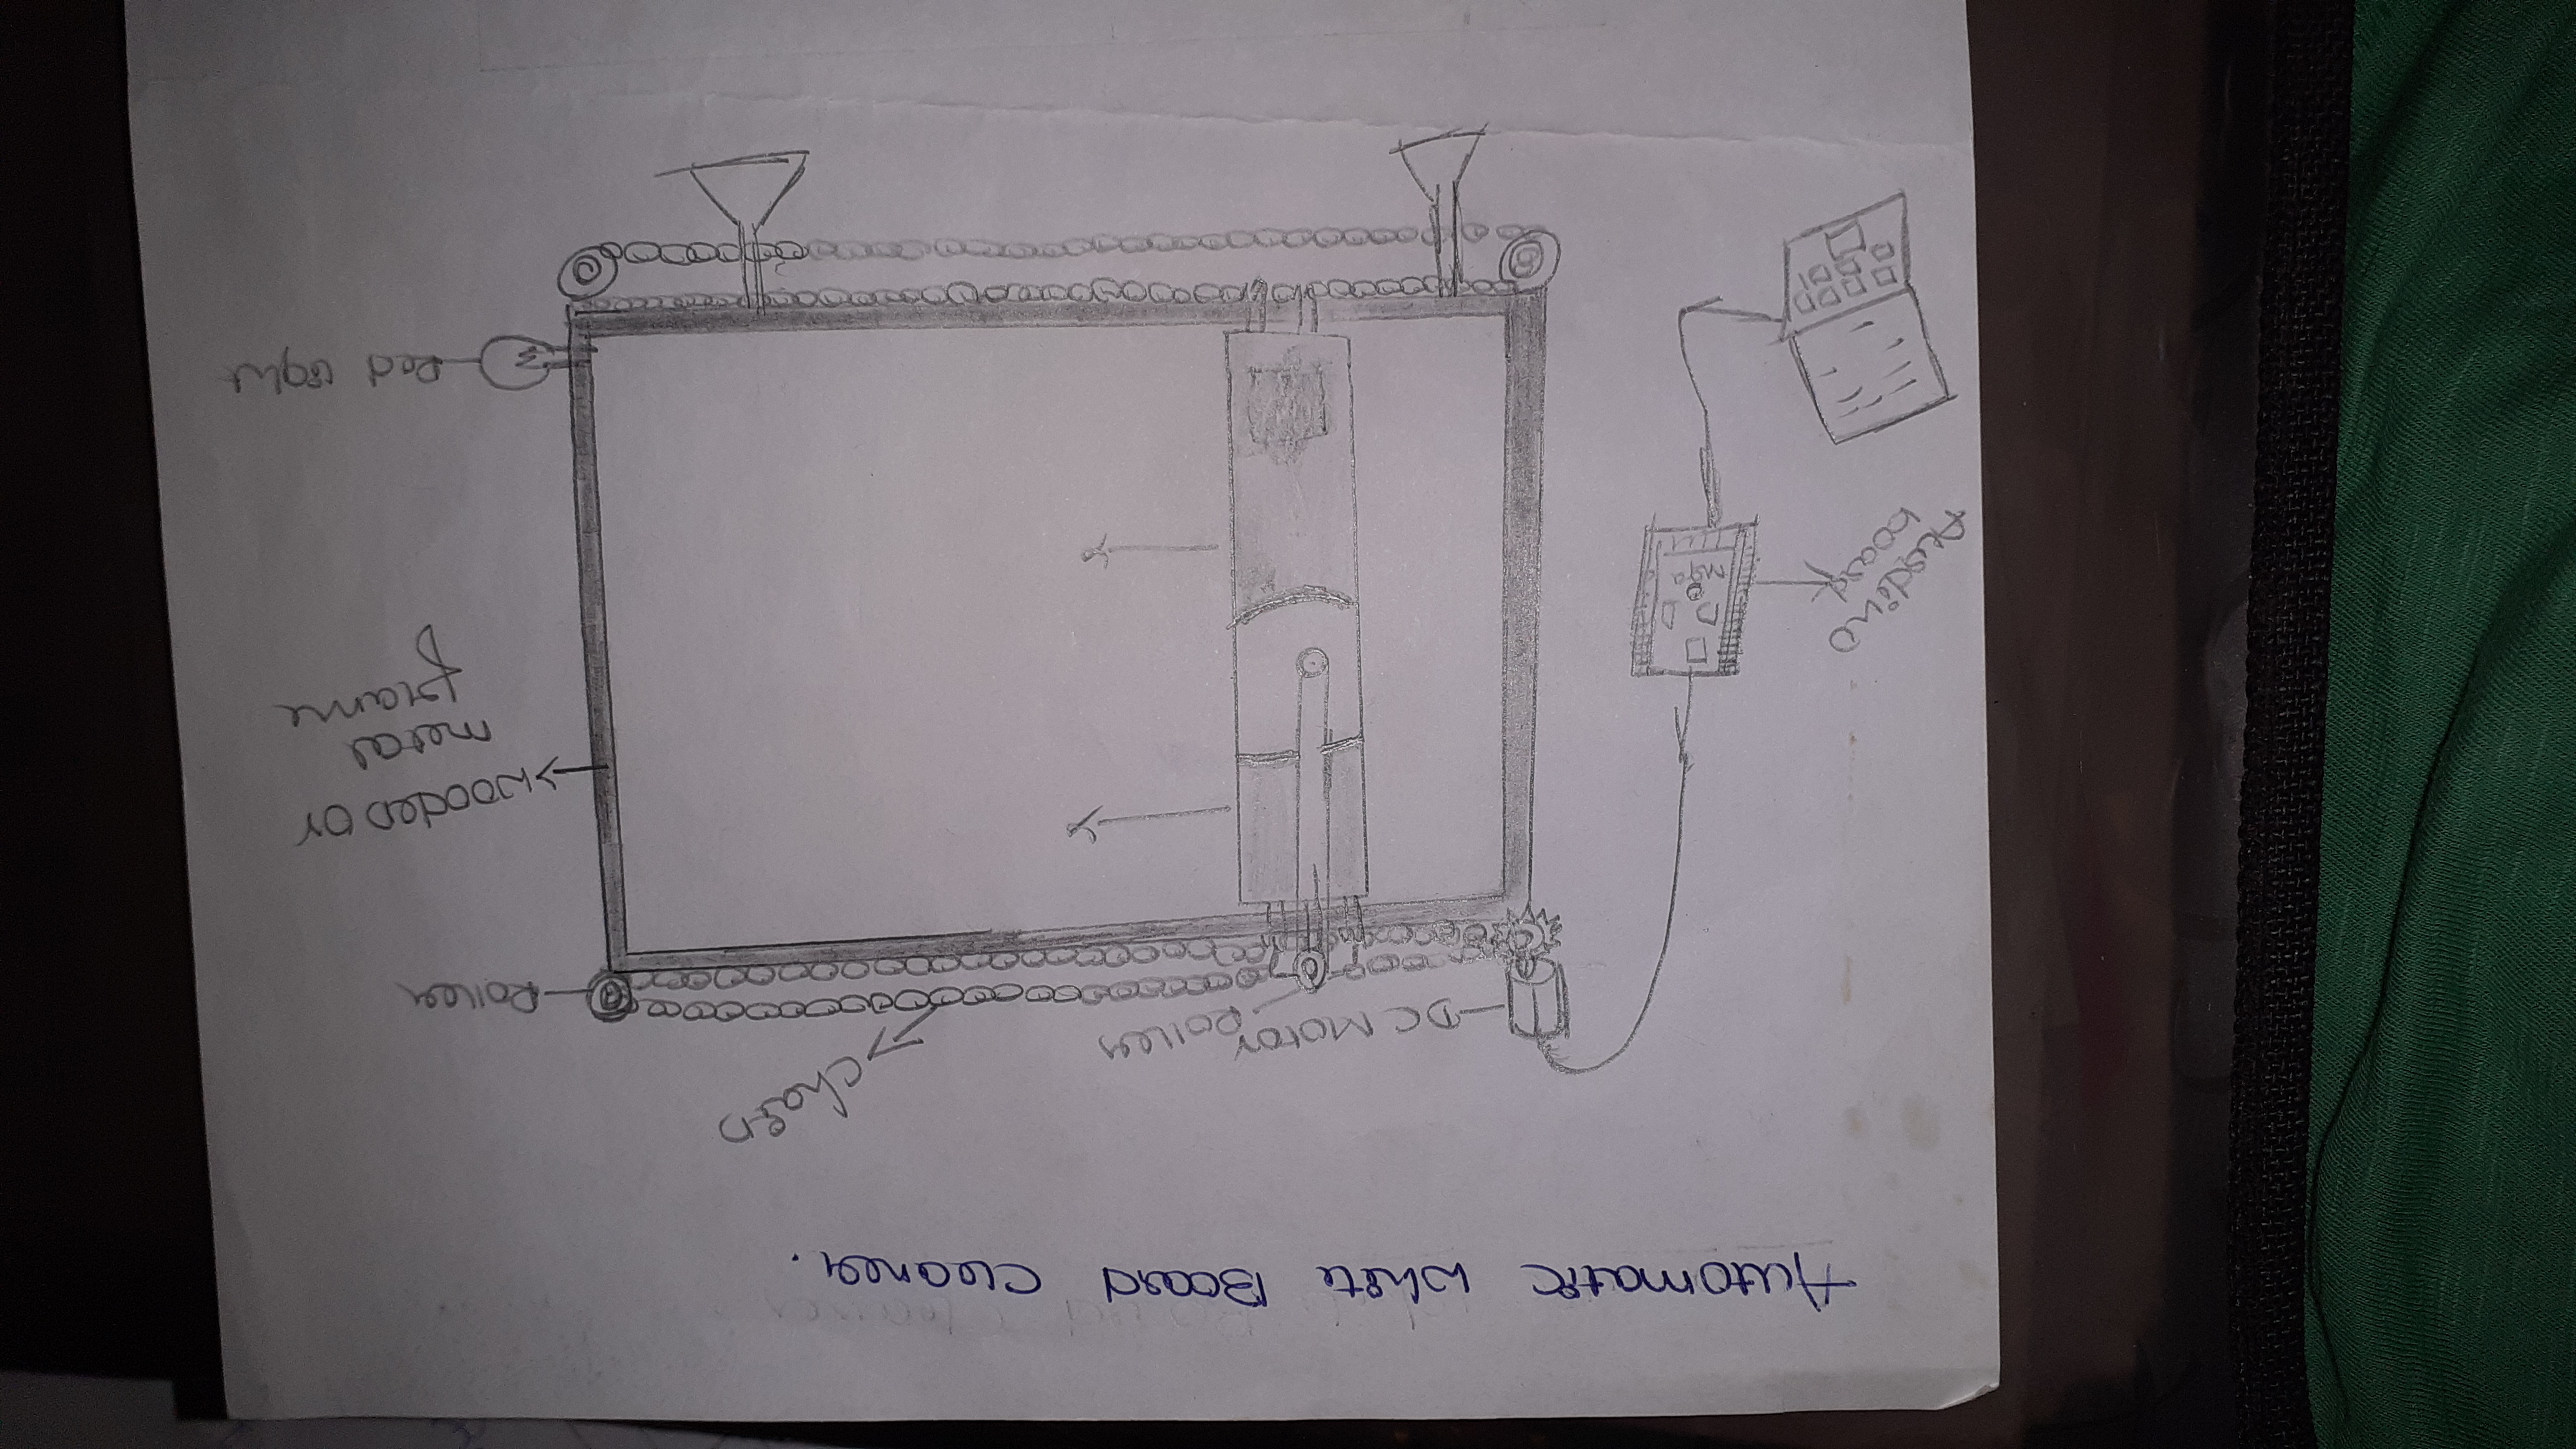 Automatic White Board Cleaner.
chain
DC Motor
Roller
Roller
wooden or
metal
frame
Arudino
board
Red light